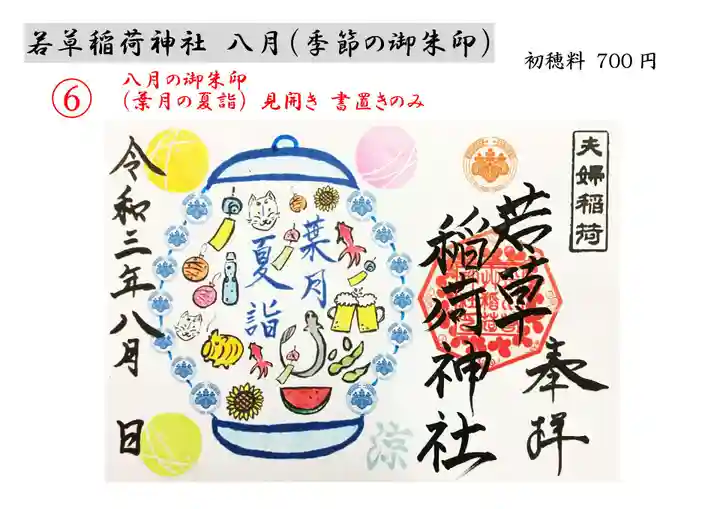 若草稲荷神社 八月(季節の御朱印)
初穂料 700円
⑥
八月の御朱印
(葉月の夏詣) 見開き 書置きのみ
夫婦稲荷
奉拝
若草
稲荷神社
葉月
夏詣
涼
令和三年八月 日